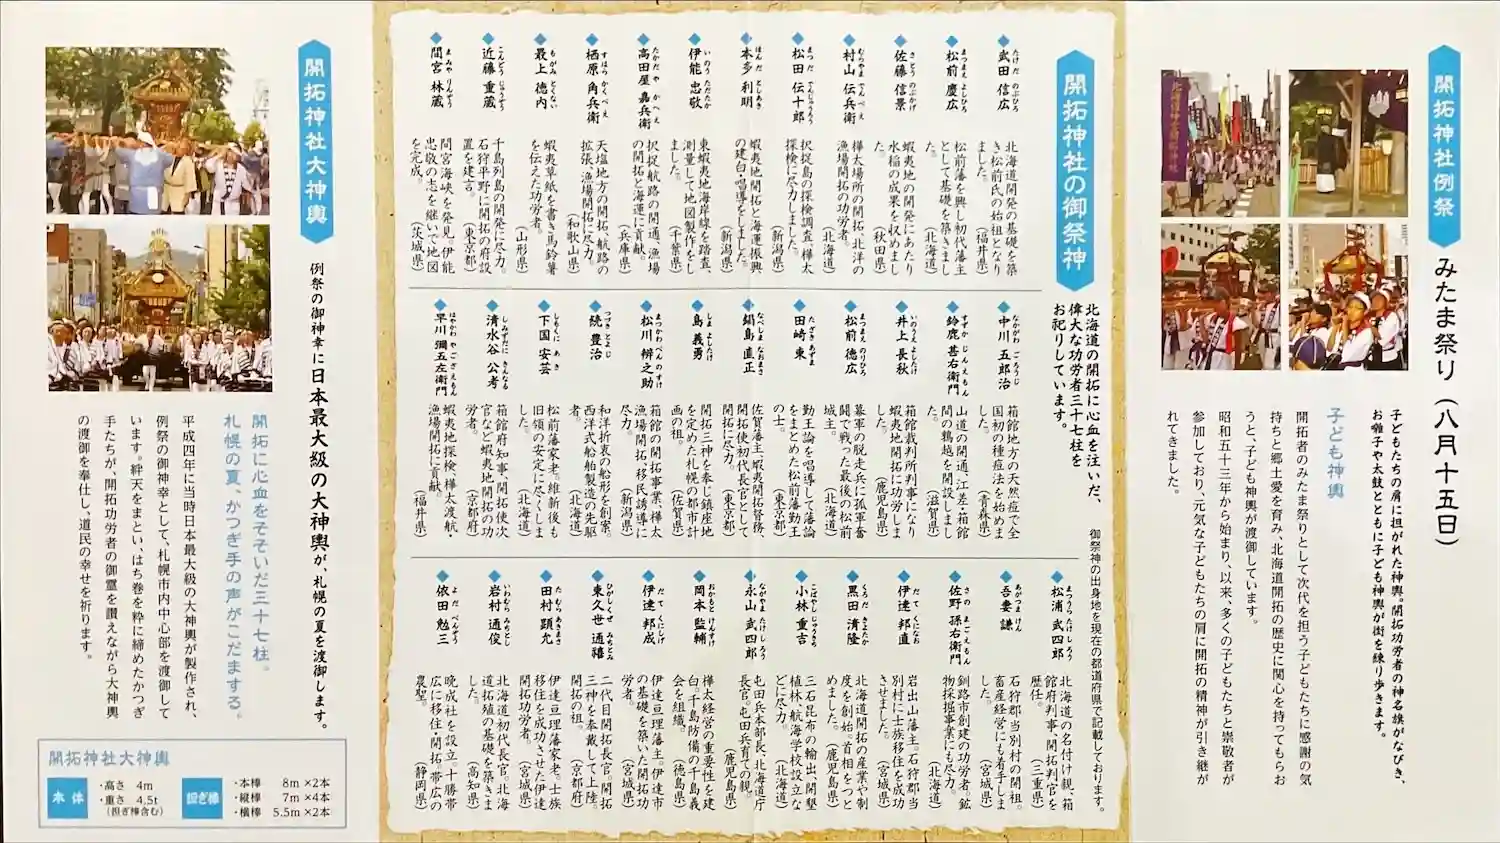 開拓神社例祭
みたま祭り(八月十五日)
子どもたちの肩に担がれた神輿。開拓功労者の神名旗がなびき、
お囃子や太鼓とともに子ども神輿が街を練り歩きます。
子ども神輿
開拓者のみたま祭りとして次代を担う子どもたちに感謝の気
持ちと郷土愛を育み、北海道開拓の歴史に関心を持ってもらお
うと、子ども神輿が渡御しています。
昭和五十三年から始まり、以来、多くの子どもたちと崇敬者が
参加しており、元気な子どもたちの肩に開拓の精神が引き継が
れてきました。
開拓神社の御祭神
北海道の開拓に心血を注いだ、
偉大な功労者三十七柱を
お祀りしています。
御祭神の出身地を現在の都道府県で記載しております。
武田 信広
たけだ のぶひろ
北海道開発の基礎を築
き松前氏の始祖となり
ました。(福井県)
松前 慶広
まつまえ よしひろ
松前藩を興し初代藩主
として基礎を築きまし
た。(北海道)
佐藤 信景
さとう のぶかげ
蝦夷地の開発にあたり
水稲の成果を収めまし
た。(秋田県)
村山 伝兵衛
むらやま でんべえ
樺太場所の開拓、北洋の
漁場開拓の功労者。
(北海道)
松田 伝十郎
まつだ でんじゅうろう
択捉島の探検調査、樺太
探検に尽力しました。
(新潟県)
本多 利明
ほんだ としあき
蝦夷地開拓と海運振興
の建白・唱導をしました。
(新潟県)
伊能 忠敬
いのう ただたか
東蝦夷地海岸線を踏査、
測量して地図製作をし
ました。(千葉県)
高田屋 嘉兵衛
たかだや かへえ
択捉航路の開通、漁場
の開拓と海運に貢献。
(兵庫県)
栖原 角兵衛
すはら かくべえ
天塩地方の開拓、航路の
拡張、漁場開拓に尽力。
(和歌山県)
最上 徳内
もがみ とくない
蝦夷草紙を書き馬鈴薯
を伝えた功労者。
(山形県)
近藤 重蔵
こんどう じゅうぞう
千島列島の開発に尽力。
石狩平野に開拓の府設
置を建言。(東京都)
間宮 林蔵
まみや りんぞう
間宮海峡を発見。伊能
忠敬の志を継いで地図
を完成。(茨城県)
中川 五郎治
なかがわ ごろうじ
箱館地方の天然痘で全
国初の種痘法を始めま
した。(青森県)
鈴鹿 甚右衛門
すずか じんえもん
山道の開通、江差・箱館
間の鶉越を開設しまし
た。(滋賀県)
井上 長秋
いのうえ ながあき
箱館裁判所判事になり
蝦夷地開拓に功労しま
した。(鹿児島県)
松前 徳広
まつまえ のりひろ
幕軍の脱走兵に孤軍奮
闘で戦った最後の松前
城主。(北海道)
田崎 東
たざき あずま
勤王論を唱導して藩論
をまとめた松前藩勤王
の士。(北海道)
鍋島 直正
なべしま なおまさ
佐賀藩主、蝦夷開拓督務、
開拓使初代長官として
開拓に尽力。(東京都)
島 義勇
しま よしたけ
開拓三神を奉じ鎮座地
を定めた札幌の都市計
画の祖。(佐賀県)
松川 辨之助
まつかわ べんのすけ
箱館の開拓事業、樺太
漁場開拓、移民誘導に
尽力。(新潟県)
続 豊治
つづき とよじ
和洋折衷の船形を創案。
西洋式船舶製造の先駆
者。(北海道)
下国 安芸
しもくに あき
松前藩家老。維新後も
旧領の安定に尽くしま
した。(北海道)
清水谷 公考
しみずだに きんなる
箱館府知事、開拓使次
官など蝦夷地開拓の功
労者。(京都府)
早川 彌五左衛門
はやかわ やござえもん
蝦夷地探検、樺太渡航・
漁場開拓に貢献。
(福井県)
松浦 武四郎
まつうら たけしろう
北海道の名付け親、箱
館府判事、開拓判官を
歴任。(三重県)
吾妻 謙
あがつま けん
石狩郡当別村の開祖。
畜産経営にも着手しま
した。(宮城県)
佐野 孫右衛門
さの まごえもん
釧路市創建の功労者。鉱
物採掘事業にも尽力。
(北海道)
伊達 邦直
だて くになお
岩出山藩主。石狩郡当
別村に士族移住を成功
させました。(宮城県)
黒田 清隆
くろだ きよたか
北海道開拓の産業や制
度を創始。首相をつと
めました。(鹿児島県)
小林 重吉
こばやし じゅうきち
三石昆布の輸出、開墾、
植林、航海学校設立な
どに尽力。(北海道)
永山 武四郎
ながやま たけしろう
屯田兵本部長、北海道庁
長官。屯田兵育ての親。
(鹿児島県)
岡本 監輔
おかもと けんすけ
樺太経営の重要性を建
白。千島防備の千島義
会を組織。(徳島県)
伊達 邦成
だて くにしげ
伊達亘理藩主。伊達市
の基礎を築いた開拓功
労者。(宮城県)
東久世 通禧
ひがしくぜ みちとみ
二代目開拓長官。開拓
三神を奉戴して上陸。
開拓の祖。(京都府)
田村 顕允
たむら あきまさ
伊達亘理藩家老。士族
移住を成功させた伊達
開拓功労者。(宮城県)
岩村 通俊
いわむら みちとし
北海道初代長官。北海
道拓殖の基礎を築きま
した。(高知県)
依田 勉三
よだ べんぞう
晩成社を設立。十勝帯
広に移住・開拓。帯広の
農聖。(静岡県)
開拓神社大神輿
例祭の御神幸に日本最大級の大神輿が、札幌の夏を渡御します。
開拓に心血をそそいだ三十七柱。
札幌の夏、かつぎ手の声がこだまする。
平成四年に当時日本最大級の大神輿が製作され、
例祭の御神幸として、札幌市内中心部を渡御して
います。絆天をまとい、はち巻を粋に締めたかつぎ
手たちが、開拓功労者の御霊を讃えながら大神輿
の渡御を奉仕し、道民の幸せを祈ります。
開拓神社大神輿
本体
・高さ 4m
・重さ 4.5t
(担ぎ棒含む)
担ぎ棒
・本棒 8m×2本
・縦棒 7m×4本
・横棒 5.5m×2本